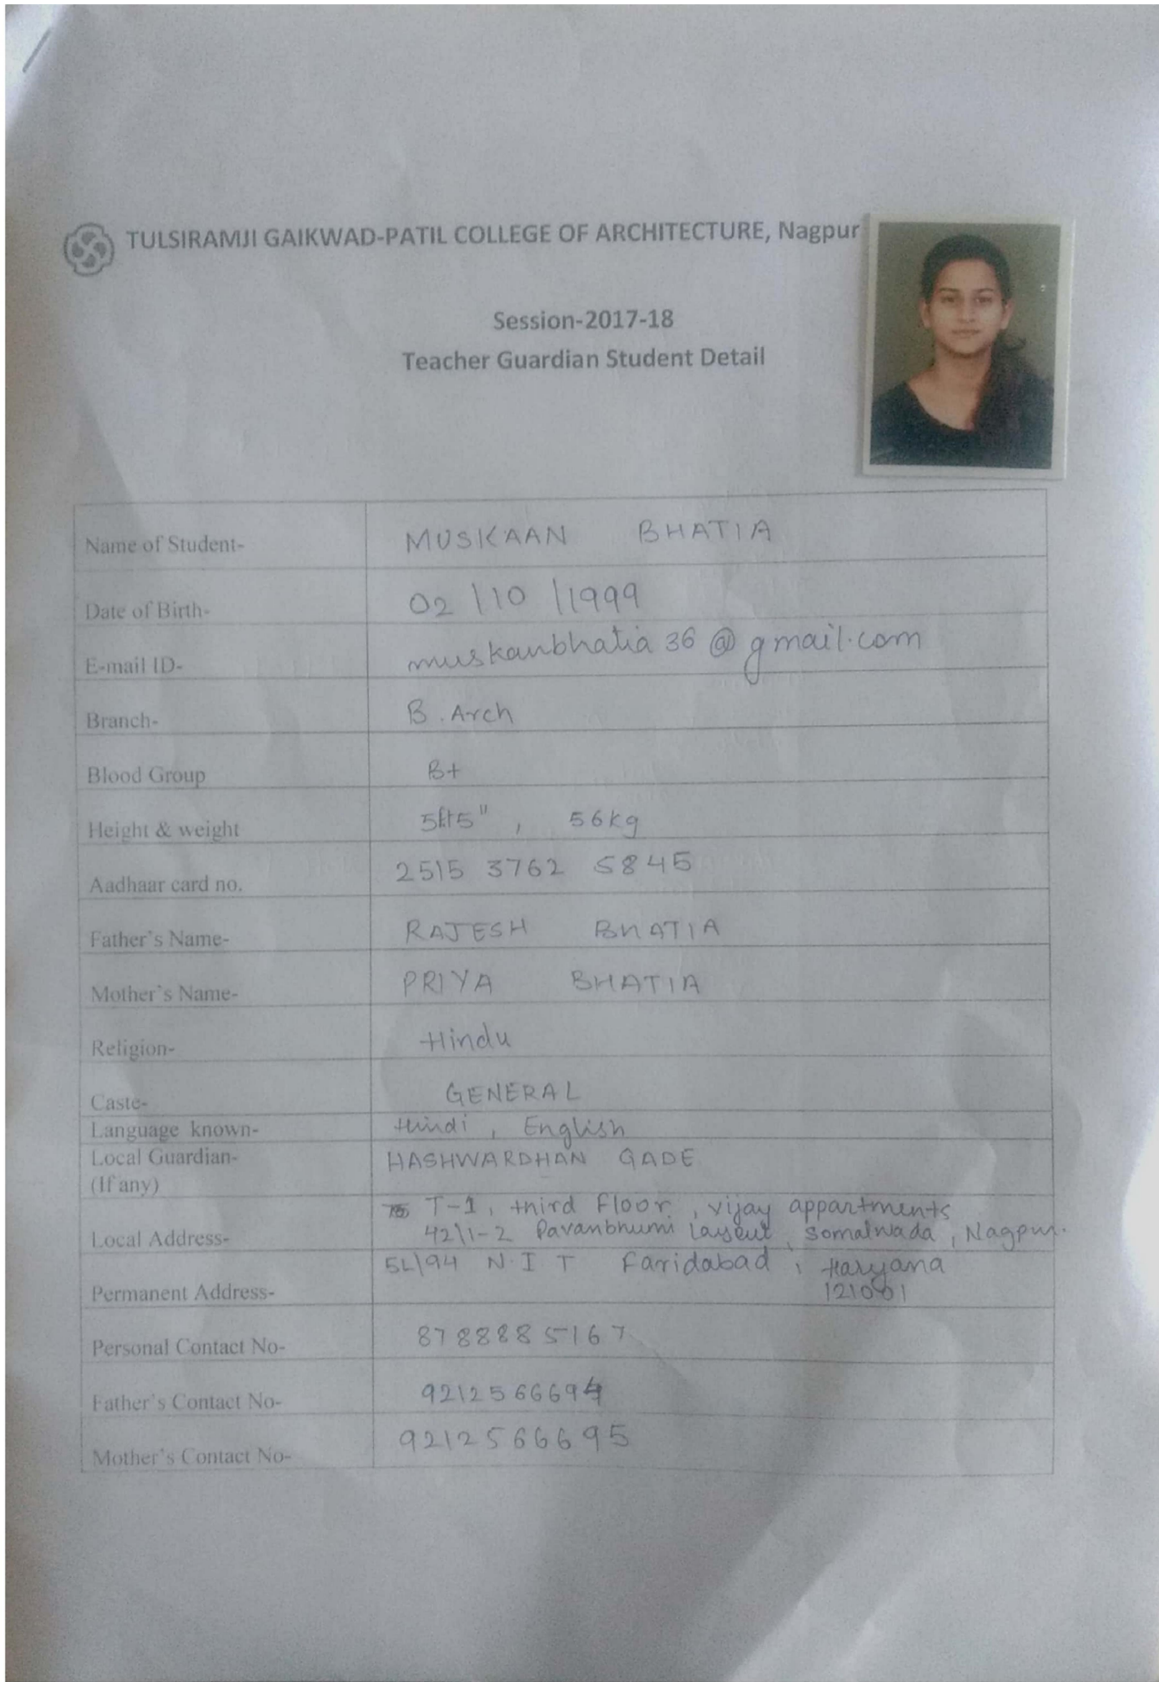 TULSIRAMJI GAIKWAD-PATIL COLLEGE OF ARCHITECTURE, Nagpur
Session-2017-18
Teacher Guardian Student Detail
Name of Student- MUSKAAN BHATIA
Date of Birth- 02/10/1999
E-mail ID- muskanbhatia36@gmail.com
Branch- B. Arch
Blood Group B+
Height & weight 5ft5", 56kg
Aadhaar card no. 2515 3762 5845
Father's Name- RAJESH BHATIA
Mother's Name- PRIYA BHATIA
Religion- Hindu
Caste- GENERAL
Language known- Hindi, English
Local Guardian- HASHWARDHAN GADE
(If any)
T-1, third Floor, vijay appartments
Local Address- 42/1-2 Pavanbhumi layout, Somalwada, Nagpur.
5L/94 N.I.T Faridabad, Haryana
Permanent Address- 121001
Personal Contact No- 8788885167
Father's Contact No- 9212566694
Mother's Contact No- 9212566695